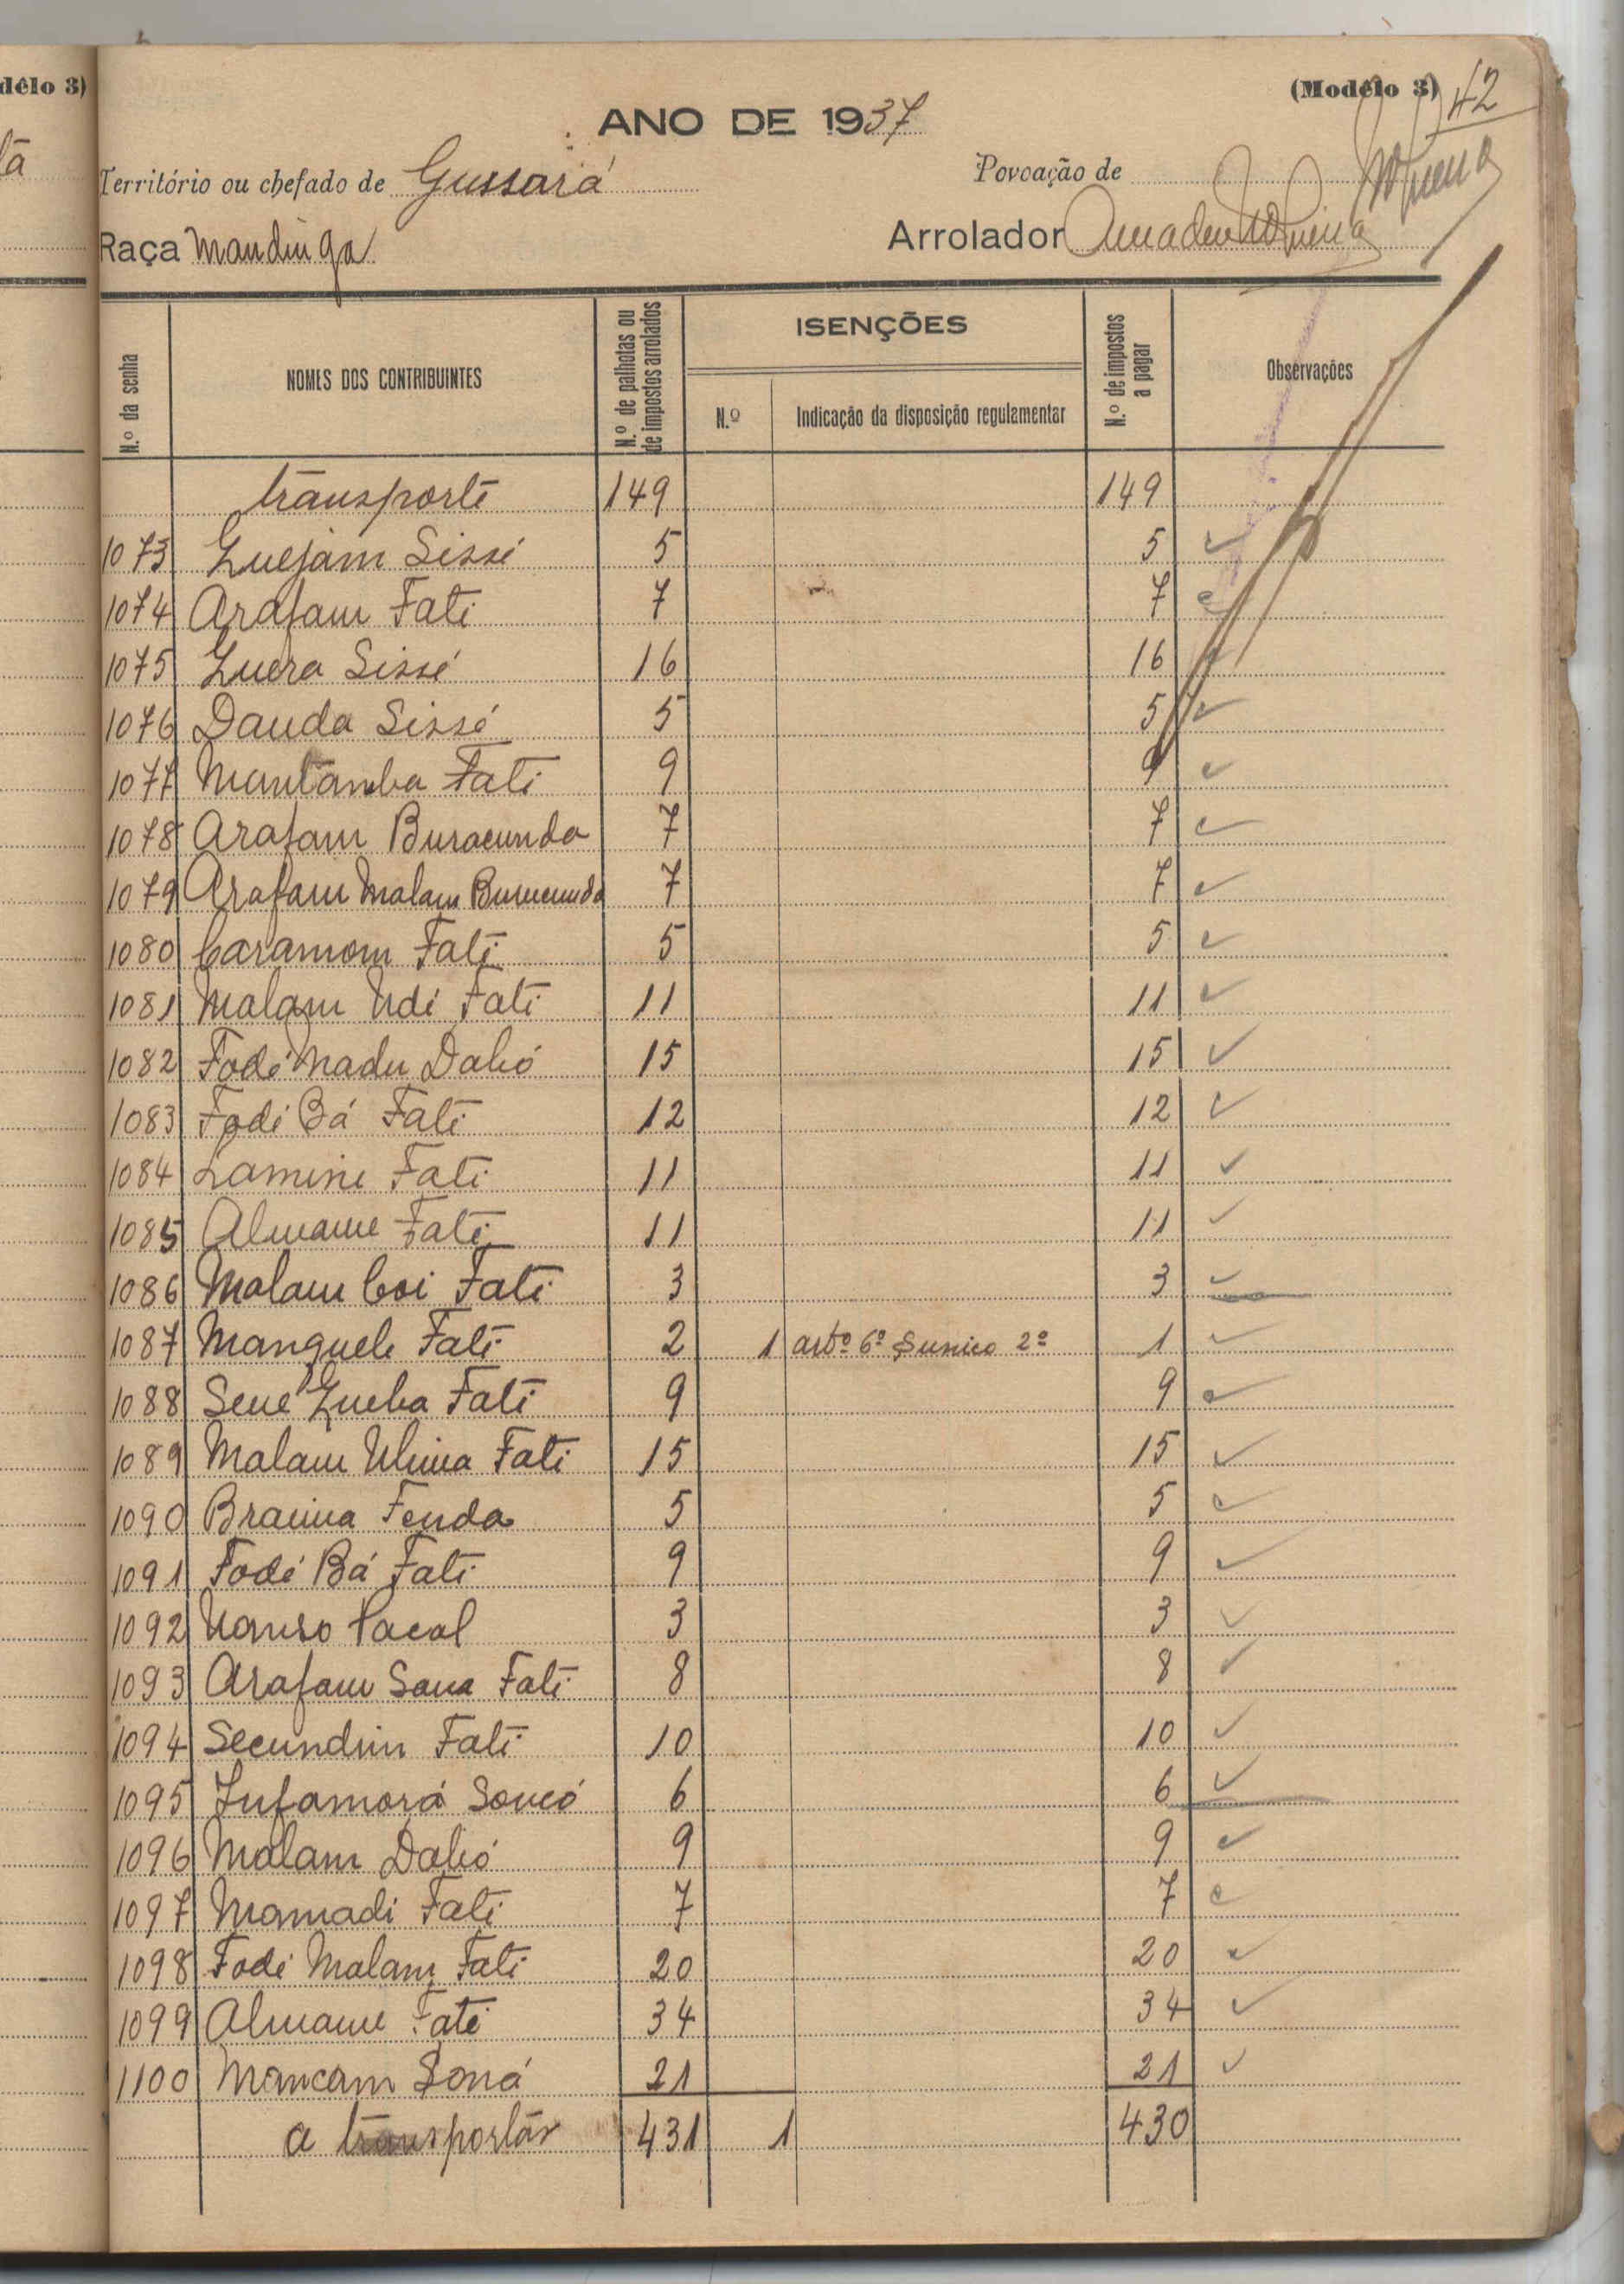 délo 3)
(Modélo 3) 42
ANO DE 1937
Território ou chefado de Gussará Povoação de
Raça Mandinga Arrolador Amadeu
N.º da senha NOMES DOS CONTRIBUINTES N.º de palhotas ou de impostos arrolados ISENÇÕES N.º de impostos a pagar Observações
N.º Indicação da disposição regulamentar
transporte 149 149
1073 Quejam Sissé 5 5
1074 Arafam Fati 7 7
1075 Quera Sissé 16 16
1076 Dauda Sissé 5 5
1077 Muntamba Fati 9 9
1078 Arafam Buracunda 7 7
1079 Arafam Malam Buracunda 7 7
1080 Caramom Fati 5 5
1081 Malam Ndi Fati 11 11
1082 Fodé Madu Dabó 15 15
1083 Fodé Bá Fati 12 12
1084 Lamine Fati 11 11
1085 Almame Fati 11 11
1086 Malam Coi Fati 3 3
1087 Manquele Fati 2 1 artº 6º § unico 2º 1
1088 Sene Queba Fati 9 9
1089 Malam Fati 15 15
1090 Braima Fenda 5 5
1091 Fodé Bá Fati 9 9
1092 Nanso Pacal 3 3
1093 Arafam Sana Fati 8 8
1094 Secundim Fati 10 10
1095 Infamorá Soncó 6 6
1096 Malam Dabó 9 9
1097 Mamadi Fati 7 7
1098 Fodé Malam Fati 20 20
1099 Almame Fati 34 34
1100 Mancam Soná 21 21
a transportár 431 1 430